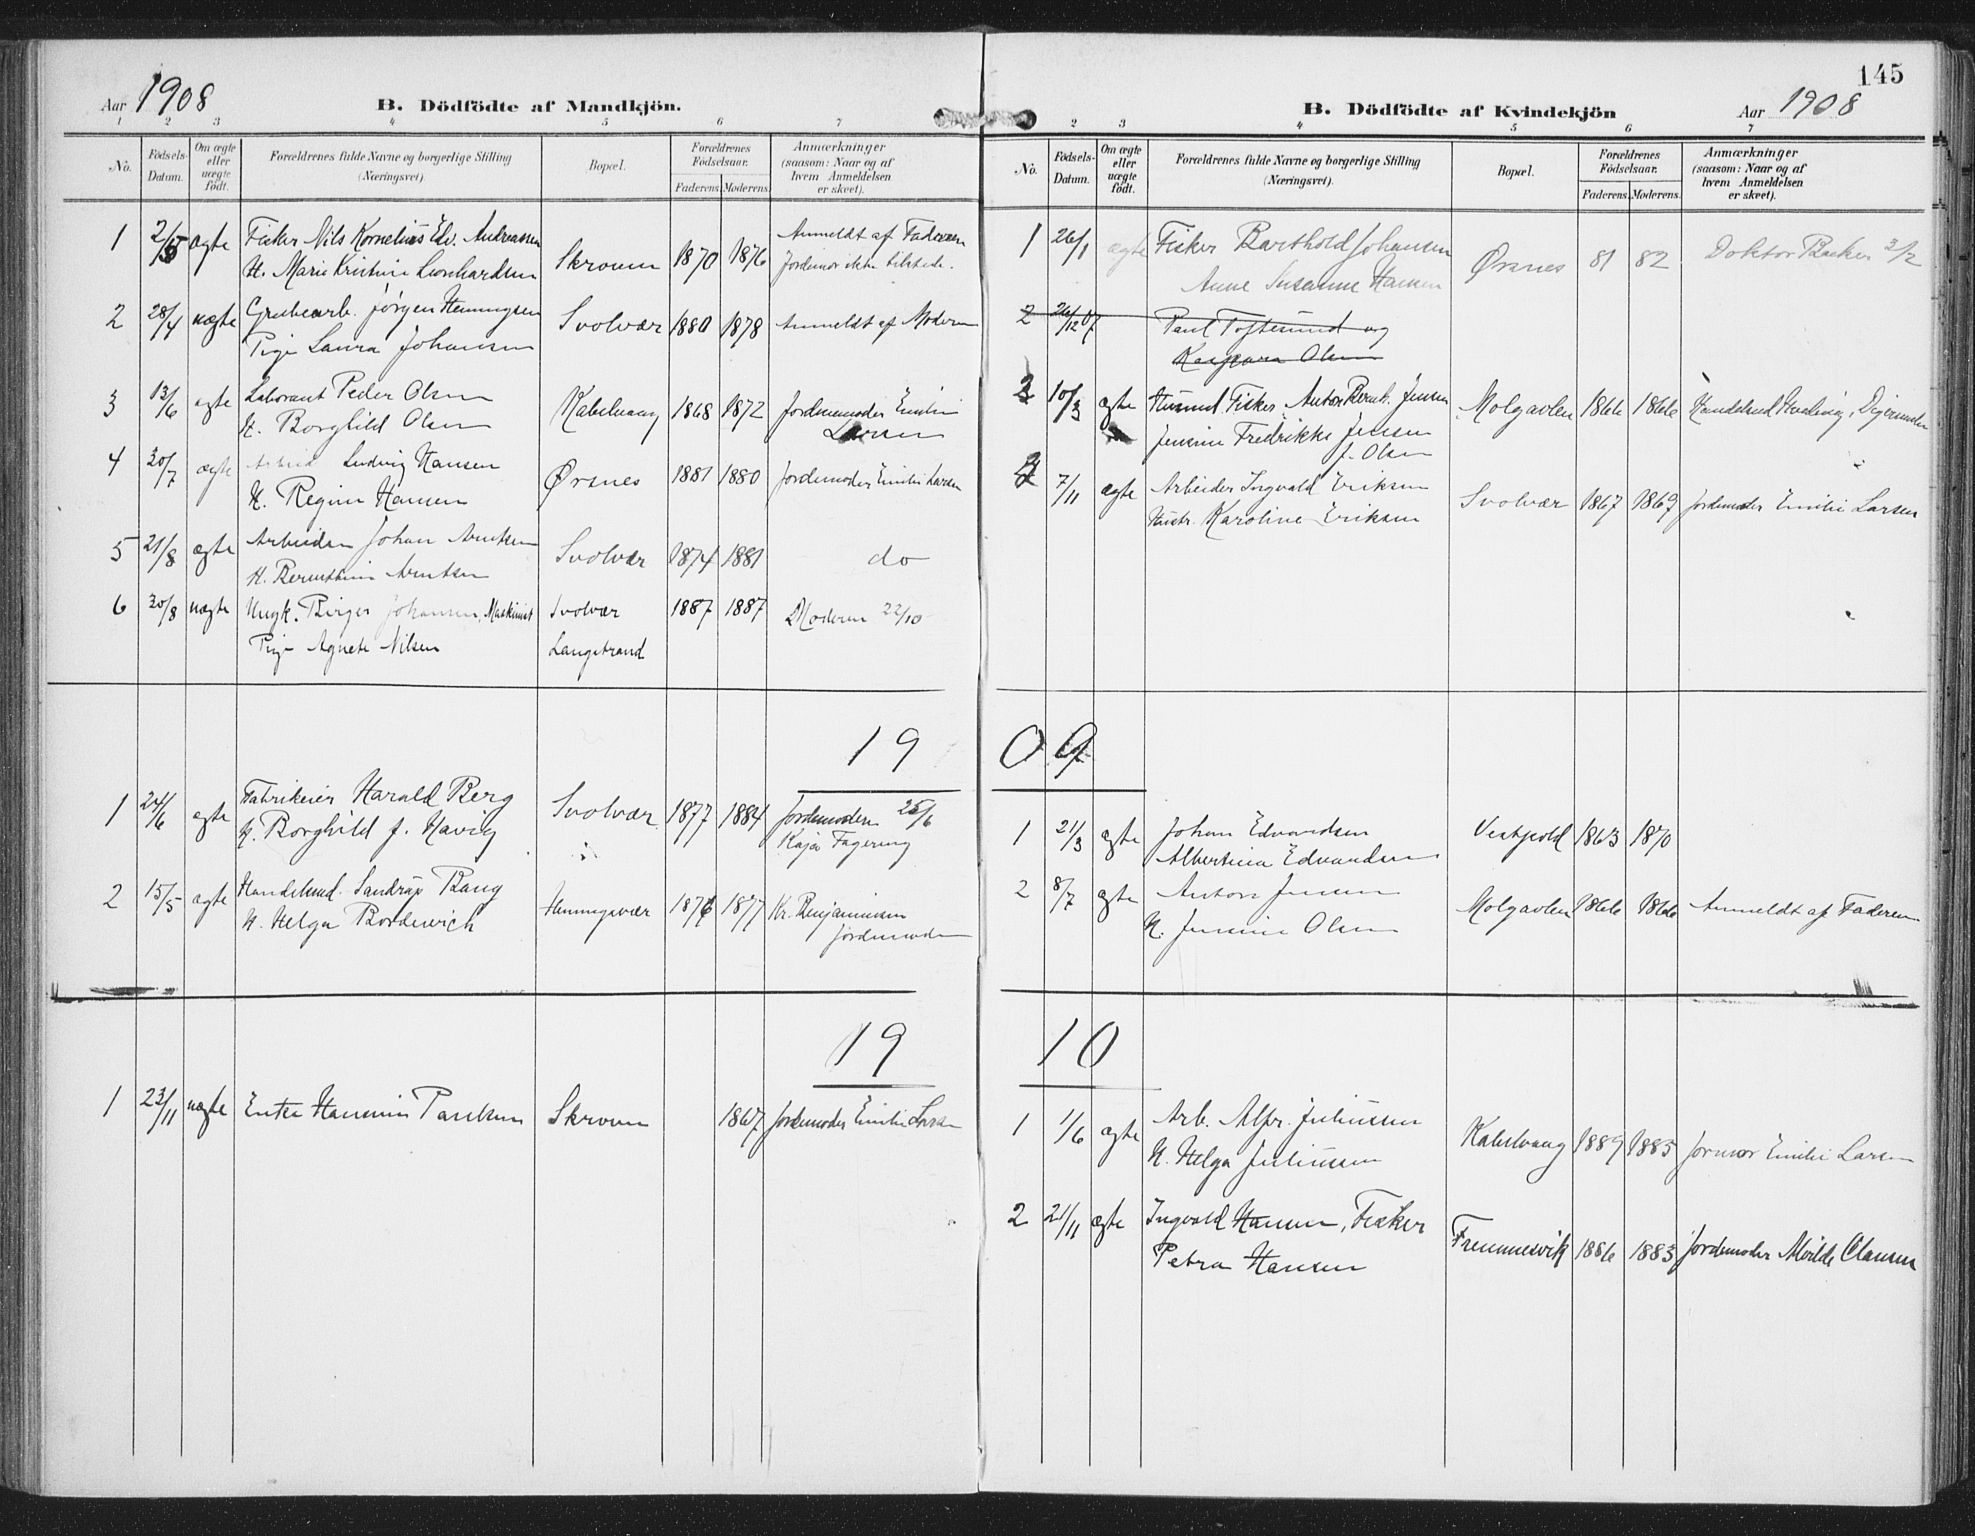 Aar 1908
B. Dödfödte af Mandkjön.
1 2 3 4 5 6 7
No. Födsels-Datum. Om ægte eller uægte födt. Forældrenes fulde Navne og borgerlige Stilling (Næringsvei). Bopæl. Forældrenes Födselsaar. Faderens. Moderens. Anmærkninger (saasom: Naar og af hvem Anmeldelsen er skeet).
1 2/5 ægte Fisker Nils Kornelius Edv. Andreassen Skroven 1870 1876 Anmeldt af Faderen
H. Marie Kristine Leonhardsen Jordemor ikke tilstede.
2 28/4 uægte Grubearb. Jørgen Henningsen Svolvær 1880 1878 Anmeldt af Moderen
Pige Laura Johansen
3 13/6 ægte Laborant Peder Olsen Kabelvaag 1868 1872 Jordemoder Emilie
H. Borghild Olsen Larsen
4 20/7 ægte Ludvig Hansen Ørsnes 1881 1880 Jordemoder Emilie Larsen
H. Regine Hansen
5 21/8 ægte Arbeider Johan Arntsen Svolvær 1874 1881 do
H. Berntine Arntsen
6 30/8 uægte Ungk. Birger Johansen, Maskinist Svolvær 1887 1887 Moderen 22/10
Pige Agnete Nilsen Langstrand
19
1 24/6 ægte Fabrikeier Harald Berg Svolvær 1877 1884 Jordemoderen 25/6
H. Borghild f. Havig Kaja Fagereng
2 15/5 ægte Handelsmd. Sandrup Bang Henningsvær 1876 1877 Kr. Benjaminsen
H. Helga Bordewich jordemoder
19
1 23/11 uægte Enke Hansine Paulsen Skroven 1867 Jordemoder Emilie Larsen
145
B. Dödfödte af Kvindekjön
Aar 1908
2 3 4 5 6 7
No. Födsels-Datum. Om ægte eller uægte födt. Forældrenes fulde Navne og borgerlige Stilling (Næringsvei). Bopæl. Forældrenes Födselsaar. Faderens. Moderens. Anmærkninger (saasom: Naar og af hvem Anmeldelsen er skeet).
1 26/1 ægte Fisker Barthold Johansen Ørsnes 81 82 Doktor Backer 3/2
Anne Susanne Hansen
2 26/12 07 Paul Toftesund og
Kaspara Olsen
2 10/3 ægte Husmd Fisker Anton Bernt. Jensen Molgavlen 1866 1866 Handelsmd
Jensine Fredrikke Jensen
f. Olsen
3 7/11 ægte Arbeider Ingvald Eriksen Svolvær 1867 1869 Jordemoder Emilie Larsen
Hustr. Karoline Eriksen
09
1 21/3 ægte Johan Edvardsen Vestpold 1863 1870
Albertina Edvardsen
2 8/7 ægte Anton Jensen Molgavlen 1866 1866 Anmeldt af Faderen
H. Jensine Olsen
10
1 1/6 ægte Arb. Alfr. Juliussen Kabelvaag 1889 1885 Jormor Emilie Larsen
H. Helga Juliussen
2 21/11 ægte Ingvald Hansen, Fisker Fremmesvik 1886 1883 Jordemoder Milde Clausen
Petra Hansen